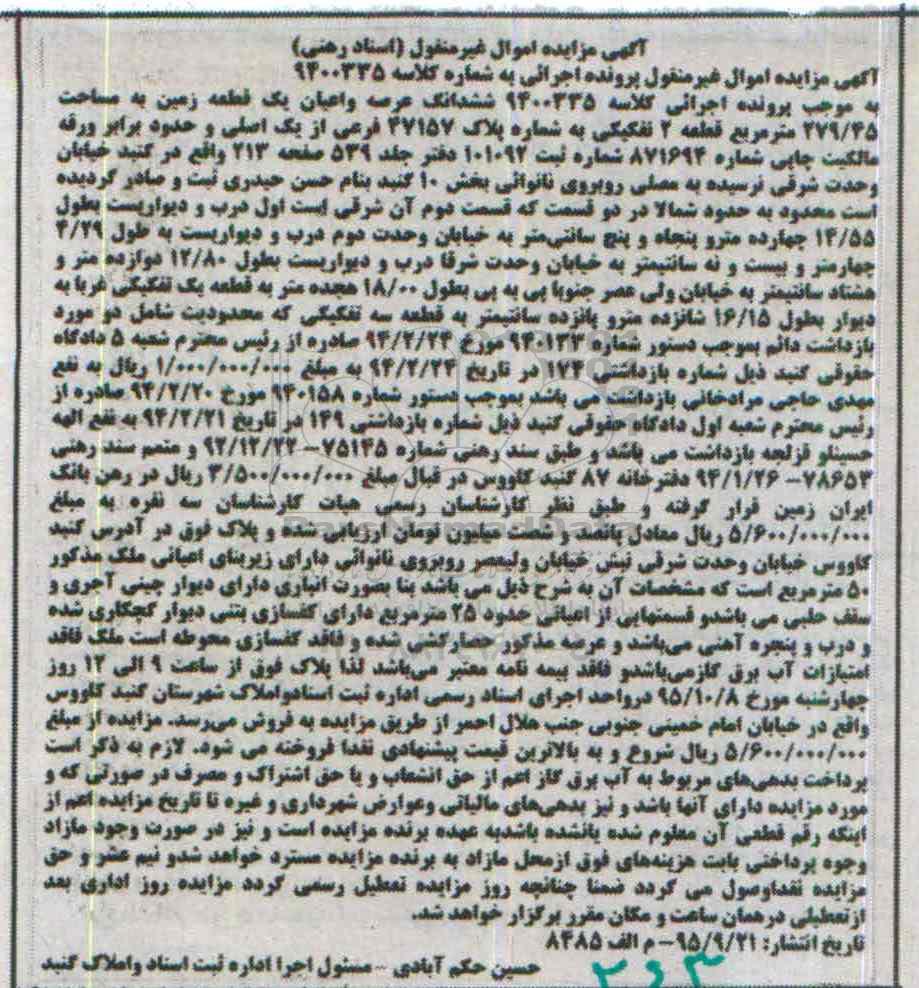 آگهی مزایده اموال غیرمنقول (اسناد رهنی)
آگهی مزایده اموال غیرمنقول پرونده اجرائی به شماره کلاسه ۹۴۰۰۳۳۵
به موجب پرونده اجرائی کلاسه ۹۴۰۰۳۳۵ ششدانگ عرصه واعیان یک قطعه زمین به مساحت
۲۷۹/۴۵ مترمربع قطعه ۲ تفکیکی به شماره پلاک ۴۷۱۵۷ فرعی از یک اصلی و حدود برابر ورقه
مالکیت چاپی شماره ۸۷۱۶۹۴ شماره ثبت ۱۰۱۰۹۲ دفتر جلد ۵۳۹ صفحه ۲۱۳ واقع در گنبد خیابان
وحدت شرقی نرسیده به مصلی روبروی نانوائی بخش ۱۰ گنبد بنام حسن حیدری ثبت و صادر گردیده
است محدود به حدود شمالا در دو قسمت که قسمت دوم آن شرقی است اول درب و دیواریست بطول
۱۴/۵۵ چهارده مترو پنجاه و پنج سانتی‌متر به خیابان وحدت دوم درب و دیواریست به طول ۴/۲۹
چهارمتر و بیست و نه سانتیمتر به خیابان وحدت شرقا درب و دیواریست بطول ۱۲/۸۰ دوازده متر و
هشتاد سانتیمتر به خیابان ولی عصر جنوبا پی به پی بطول ۱۸/۰۰ هجده متر به قطعه یک تفکیکی غربا به
دیوار بطول ۱۶/۱۵ شانزده مترو پانزده سانتیمتر به قطعه سه تفکیکی که محدودیت شامل دو مورد
بازداشت دائم بموجب دستور شماره ۹۴۰۱۳۳ مورخ ۹۴/۲/۲۴ صادره از رئیس محترم شعبه ۵ دادگاه
حقوقی گنبد ذیل شماره بازداشتی ۱۷۴ در تاریخ ۹۴/۲/۲۴ به مبلغ ۱/۰۰۰/۰۰۰/۰۰۰ ریال به نفع
مهدی حاجی مرادخانی بازداشت می باشد بموجب دستور شماره ۹۴۰۱۵۸ مورخ ۹۴/۲/۲۰ صادره از
رئیس محترم شعبه اول دادگاه حقوقی گنبد ذیل شماره بازداشتی ۱۴۹ در تاریخ ۹۴/۲/۲۱ به نفع الهه
حسینلو قزلجه بازداشت می باشد و طبق سند رهنی شماره ۷۵۱۴۵– ۹۲/۱۲/۲۲ و متمم سند رهنی
۷۸۶۵۳– ۹۴/۱/۲۶ دفترخانه ۸۷ گنبد کاووس در قبال مبلغ ۳/۵۰۰/۰۰۰/۰۰۰ ریال در رهن بانک
ایران زمین قرار گرفته و طبق نظر کارشناسان رسمی هیات کارشناسان سه نفره به مبلغ
۵/۶۰۰/۰۰۰/۰۰۰ ریال معادل پانصد و شصت میلیون تومان ارزیابی شده و پلاک فوق در آدرس گنبد
کاووس خیابان وحدت شرقی نبش خیابان ولیعصر روبروی نانوائی دارای زیربنای اعیانی ملک مذکور
۵۰ مترمربع است که مشخصات آن به شرح ذیل می باشد بنا بصورت انباری دارای دیوار چینی آجری و
سقف حلبی می باشدو قسمتهایی از اعیانی حدود ۲۵ مترمربع دارای کفسازی بتنی دیوار گچکاری شده
و درب و پنجره آهنی می‌باشد و عرصه مذکور حصارکشی شده و فاقد کفسازی محوطه است ملک فاقد
امتیازات آب برق گازمی‌باشدو فاقد بیمه نامه معتبر می‌باشد لذا پلاک فوق از ساعت ۹ الی ۱۲ روز
چهارشنبه مورخ ۹۵/۱۰/۸ درواحد اجرای اسناد رسمی اداره ثبت اسنادواملاک شهرستان گنبد کاووس
واقع در خیابان امام خمینی جنوبی جنب هلال احمر از طریق مزایده به فروش می‌رسد. مزایده از مبلغ
۵/۶۰۰/۰۰۰/۰۰۰ ریال شروع و به بالاترین قیمت پیشنهادی نقدا فروخته می شود. لازم به ذکر است
پرداخت بدهی‌های مربوط به آب برق گاز اعم از حق انشعاب و یا حق اشتراک و مصرف در صورتی که و
مورد مزایده دارای آنها باشد و نیز بدهی‌های مالیاتی وعوارض شهرداری و غیره تا تاریخ مزایده اعم از
اینکه رقم قطعی آن معلوم شده یانشده باشدبه عهده برنده مزایده است و نیز در صورت وجود مازاد
وجوه پرداختی بابت هزینه‌های فوق ازمحل مازاد به برنده مزایده مسترد خواهد شدو نیم عشر و حق
مزایده نقداوصول می گردد ضمنا چنانچه روز مزایده تعطیل رسمی گردد مزایده روز اداری بعد
ازتعطیلی درهمان ساعت و مکان مقرر برگزار خواهد شد.
تاریخ انتشار: ۹۵/۹/۲۱– م الف ۸۴۸۵
حسین حکم آبادی – مسئول اجرا اداره ثبت اسناد واملاک گنبد